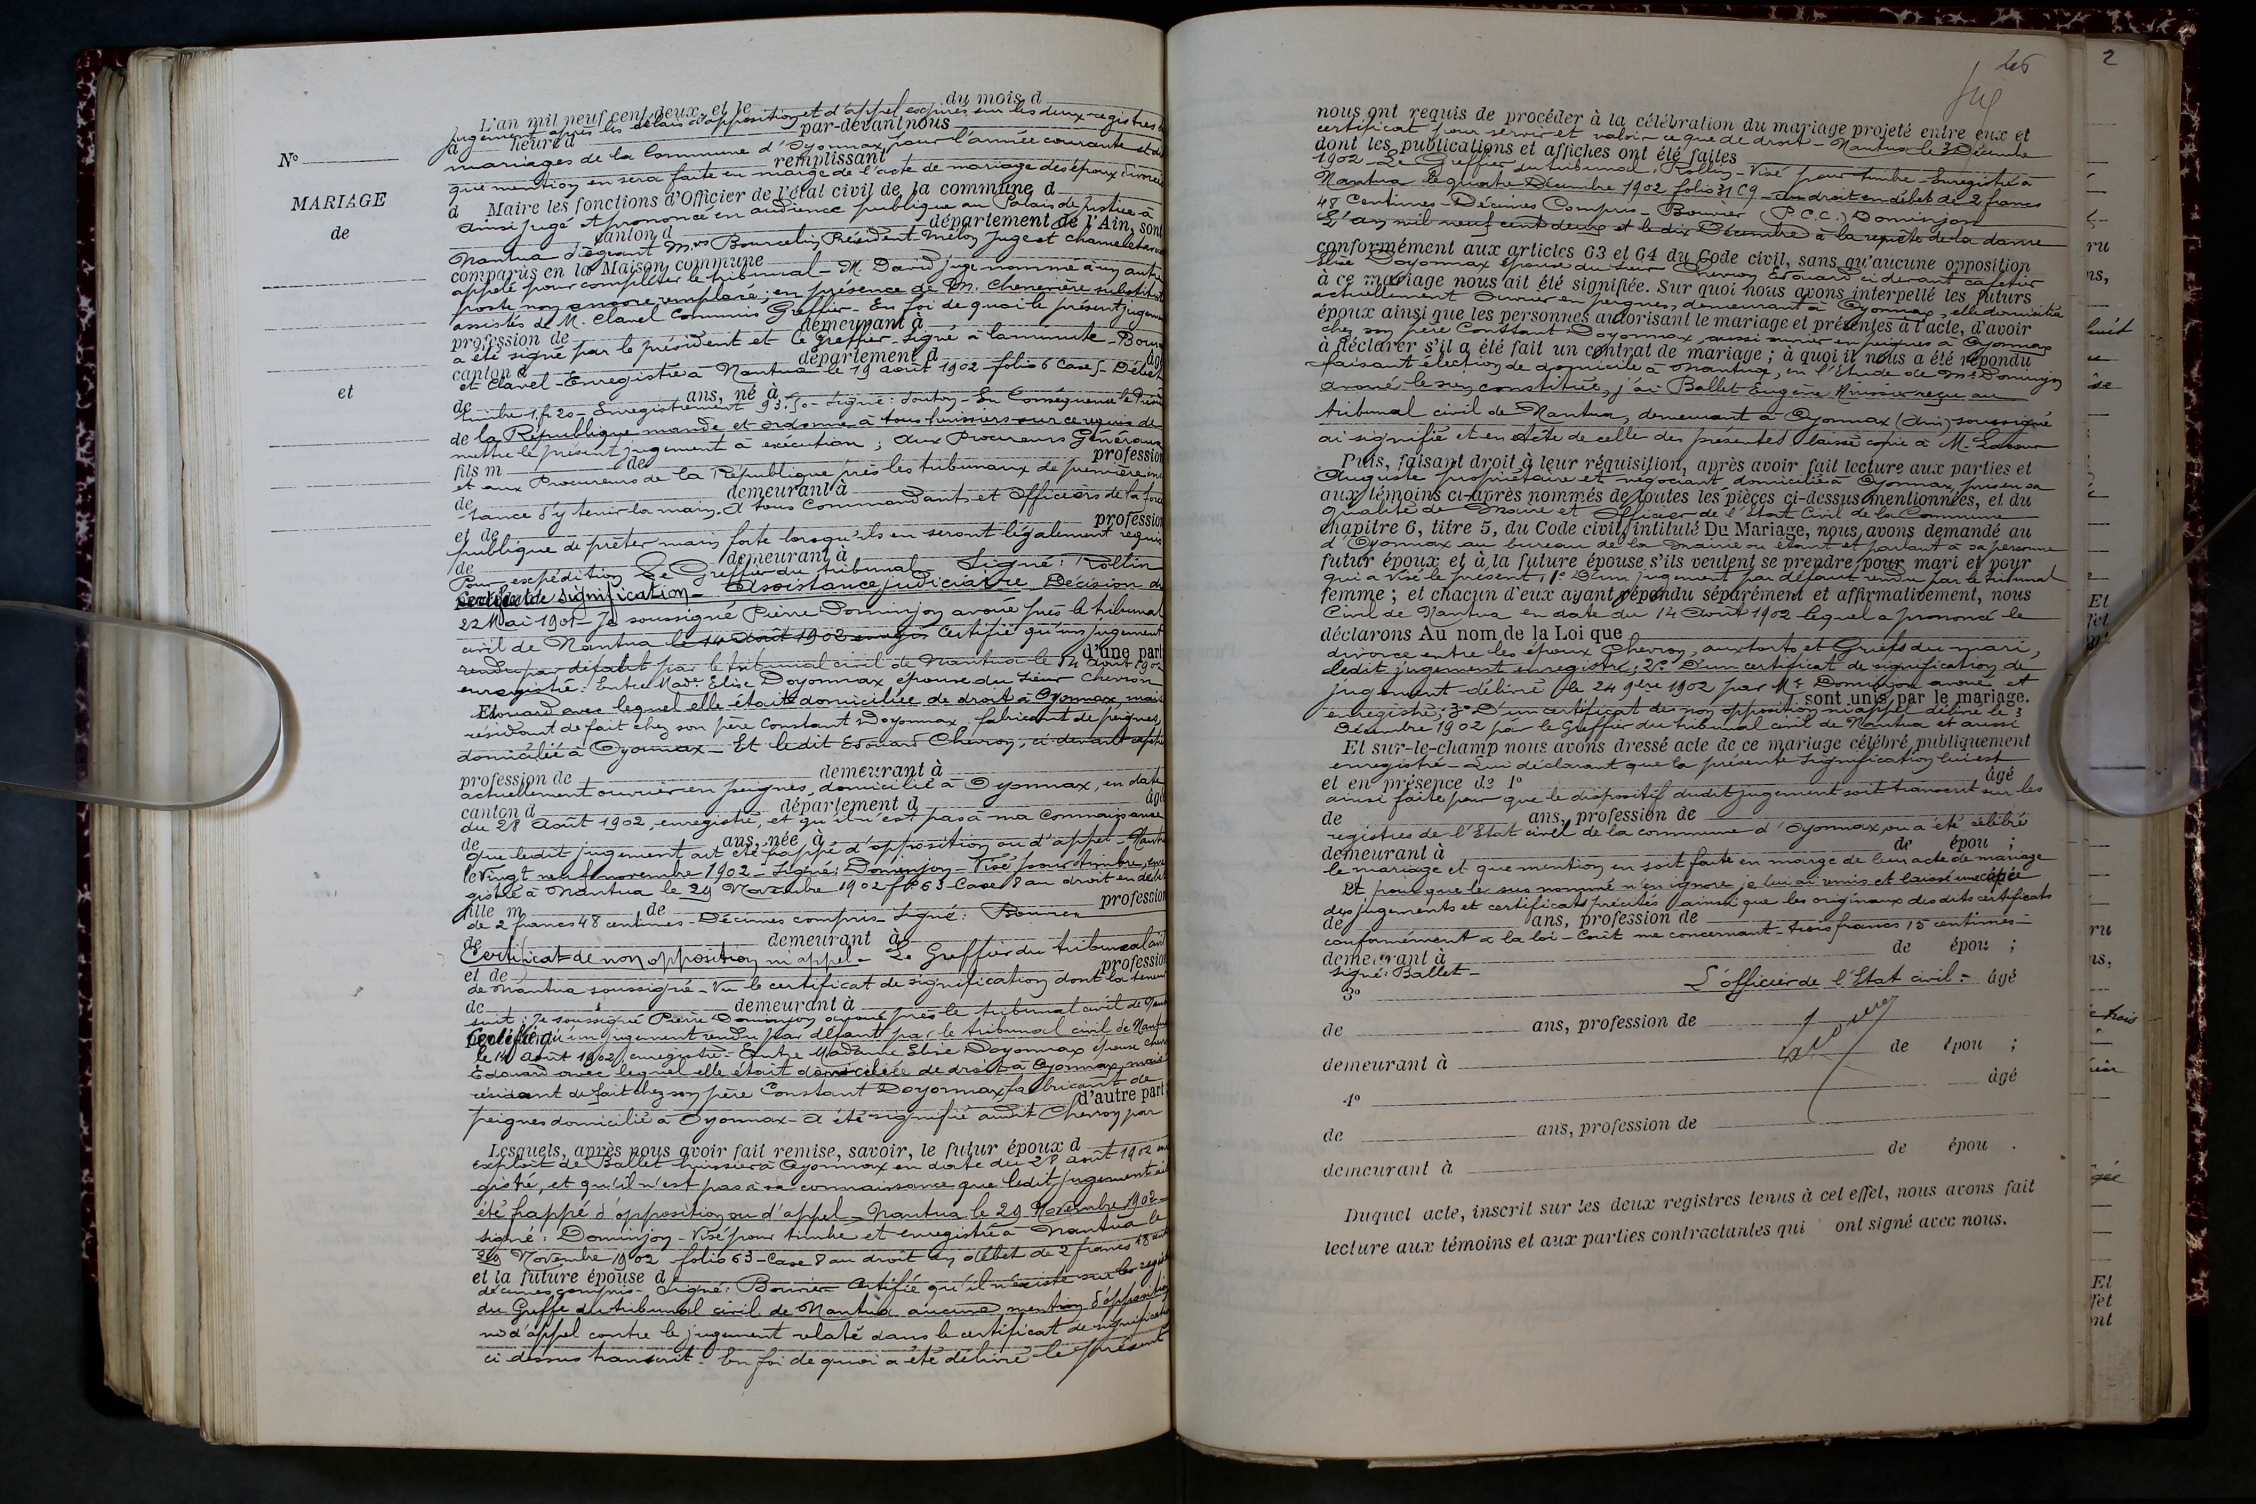 L'an mil neuf cent deux, et le du mois d
jugement après les délais d'opposition et d'appel expirés sur les deux registres
à heure d par-devant nous
mariages de la Commune d'Oyonnax, pour l'année courante et
N° remplissant
que mention en sera faite en marge de l'acte de mariage des époux
MARIAGE
d Maire les fonctions d'Officier de l'état civil de la commune d
de
ainsi jugé et prononcé en audience publique au Palais de Justice à
canton d département de l'Ain, sont
Nantua siégeant Mrs Bourcelin, Président Juge et
comparus en la Maison commune
appelé pour compléter le tribunal - M. David juge nommé à un autre
poste non encore remplacé, en présence de M. Chenevière substitut
assistés de M. Clavel Commis Greffier - En foi de quoi le présent jugement
profession de demeurant à
a été signé par le président et le greffier - signé à la minute -
canton d département d âgé
et Clavel - Enregistré à Nantua le 19 août 1902 - folio 6 Case 5 - Débet
et
de ans, né à
timbre 1,fr 20 - Enregistrement 93.50 - Signé: - En Conséquence le
de la République mande et ordonne à tous huissiers sur ce requis de
mettre le présent jugement à exécution; aux Procureurs Généraux
fils m de profession
et aux Procureurs de la République près les tribunaux de première ins
de demeurant à
tance d'y tenir la main. A tous Commandants et Officiers de la force
et de profession
publique de prêter main forte lorsqu'ils en seront légalement requis
de demeurant à
Pour expédition Le Greffier du tribunal - Signé: Rollin
Certificat de signification - Assistance judiciaire Décision du
22 Mai 1901 - Je soussigné Pierre Dominjon avoué près le tribunal
civil de Nantua le 14 août 1902 certifie qu'un jugement
d'une part
rendu par défaut par le tribunal civil de Nantua le 14 août 1902
enregistré: Entre Made Elise Doyonnax épouse du Sieur Chevron
Edouard avec lequel elle était domiciliée de droit à Oyonnax, mais
résidant de fait chez son père Constant Doyonnax, fabricant de peignes,
domicilié à Oyonnax - Et ledit Edouard Chevron, ci devant
profession de demeurant à
actuellement ouvrier en peignes, domicilié à Oyonnax, en date
canton d département d âgé
du 28 Août 1902, enregistré, et qu'il n'est pas à ma connaissance
de ans, née à
que ledit jugement ait été frappé d'opposition ou d'appel -
le vingt neuf novembre 1902 - Signé: Dominjon - Visé pour timbre, enre
gistré à Nantua le 29 Novembre 1902 f° 63 Case 8 au droit en débet
fille m de profession
de 2 francs 48 centimes - Décimes compris - Signé: Bouvier
de demeurant à
Certificat de non opposition ni appel - Le Greffier du tribunal civil
et de profession
de Nantua soussigné - Vu le certificat de signification dont la teneur
de demeurant à
suit: Je soussigné Pierre Dominjon avoué près le tribunal civil de
Certifie qu'un jugement rendu par défaut par le tribunal civil de Nantua
le 14 août 1902, enregistré: Entre Madame Elise Doyonnax épouse
Edouard avec lequel elle était domiciliée de droit à Oyonnax, mais
résidant de fait chez son père Constant Doyonnax fabricant de
d'autre part
peignes domicilié à Oyonnax - A été signifié audit Chevron par
Lesquels, après nous avoir fait remise, savoir, le futur époux d
exploit de Ballet huissier à Oyonnax en date du 28 août 1902
gistré, et qu'il n'est pas à sa connaissance que ledit jugement ait
été frappé d'opposition ou d'appel - Nantua le 29 Novembre 1902 -
signé: Dominjon - Visé pour timbre et enregistré à Nantua le
29 Novembre 1902 folio 63 - Case 8 au droit en débet de 2 francs 48
et la future épouse d
décimes compris - Signé: Bouvier - Certifie qu'il n'existe sur les
du Greffe du tribunal civil de Nantua aucune mention d'opposition
ni d'appel contre le jugement relaté dans le certificat de signification
ci dessus transcrit. En foi de quoi a été délivré le présent
nous ont requis de procéder à la célébration du mariage projeté entre eux et
certificat pour servir et valoir ce que de droit - Nantua le 3 Décembre
dont les publications et affiches ont été faites
1902 - Le Greffier du tribunal: Rollin - Visé pour timbre - Enregistré à
Nantua le quatre Décembre 1902 folio 71 C9 - au droit en débet de 2 francs
48 Centimes - Décimes Compris - Bouvier (P.C.C.) Dominjon
L'an mil neuf cent deux et le dix Décembre à la requête de la dame
conformément aux articles 63 et 64 du Code civil, sans qu'aucune opposition
Elise Doyonnax épouse du sieur Chevron Edouard ci devant cafetier
à ce mariage nous ait été signifiée. Sur quoi nous avons interpellé les futurs
actuellement ouvrier en peignes, demeurant à Oyonnax, elle domiciliée
époux ainsi que les personnes autorisant le mariage et présentes à l'acte, d'avoir
chez son père Constant Doyonnax, aussi ouvrier en peignes à Oyonnax
à déclarer s'il a été fait un contrat de mariage; à quoi il nous a été répondu
faisant élection de domicile à Nantua, en l'Etude de Me Dominjon
avoué le sien constitué, j'ai Ballet Eugène Huissier reçu au
tribunal civil de Nantua, demeurant à Oyonnax (Ain) soussigné
ai signifié et en tête de celle des présentes laissé copie à M.
Puis, faisant droit à leur réquisition, après avoir fait lecture aux parties et
Auguste propriétaire et négociant domicilié à Oyonnax, pris en sa
aux témoins ci-après nommés de toutes les pièces ci-dessus mentionnées, et du
qualité de Maire et Officier de l'Etat Civil de la Commune
chapitre 6, titre 5, du Code civil, intitulé Du Mariage, nous avons demandé au
d'Oyonnax au bureau de la mairie où étant et parlant à sa personne
futur époux et à la future épouse s'ils veulent se prendre pour mari et pour
qui a visé le présent, 1° D'un jugement par défaut rendu par le tribunal
femme; et chacun d'eux ayant répondu séparément et affirmativement, nous
Civil de Nantua en date du 14 Août 1902 lequel a prononcé le
déclarons Au nom de la Loi que
divorce entre les époux Chevron, aux torts et Griefs du mari,
ledit jugement enregistré; 2° D'un certificat de signification de
jugement délivré le 24 9bre 1902 par Me Dominjon avoué et
sont unis par le mariage.
enregistré; 3° D'un certificat de non opposition ni appel délivré le 3
Décembre 1902 par le Greffier du tribunal civil de Nantua et aussi
Et sur-le-champ nous avons dressé acte de ce mariage célébré publiquement
enregistré - Lui déclarant que la présente signification lui est
et en présence de 1° âgé
ainsi faite pour que le dispositif dudit jugement soit transcrit sur les
de ans, profession de
registres de l'Etat civil de la commune d'Oyonnax, où a été célébré
demeurant à de épou ;
le mariage et que mention en soit faite en marge de leur acte de mariage
Et pour que le sus nommé n'en ignore je lui ai remis et laissé une copie
des jugements et certificats précités ainsi que les originaux des dits certificats
de ans, profession de
conformément à la loi - Coût me concernant - trois francs 15 centimes -
demeurant à de épou ;
Signé: Ballet -
L'officier de l'Etat civil - âgé
3°
de ans, profession de
demeurant à de épou ;
4° âgé
de ans, profession de
demeurant à de épou .
Duquel acte, inscrit sur les deux registres tenus à cet effet, nous avons fait
lecture aux témoins et aux parties contractantes qui ont signé avec nous.
2